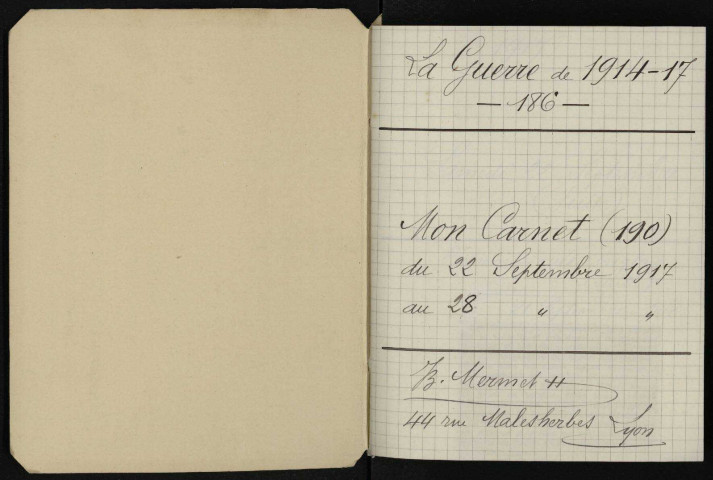 La Guerre de 1914-17
— 186 —
Mon Carnet (190)
du 22 Septembre 1917
au 28 " "
B. Mermet
44 rue Malesherbes Lyon